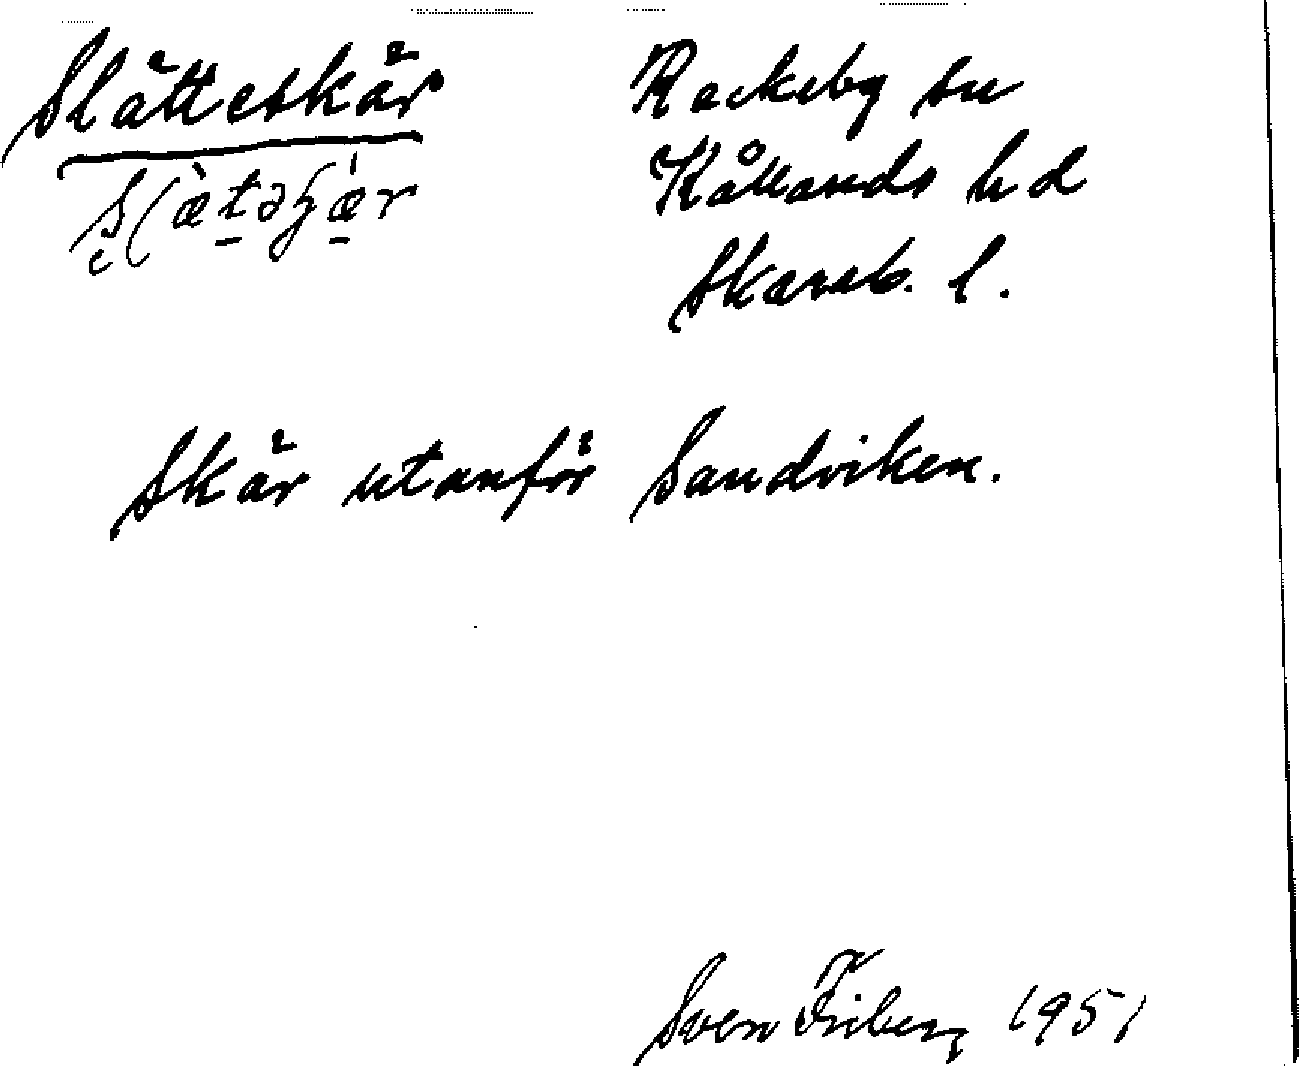 Slätteskär
Rackeby sn
Kållands hd
Skarab. l.
Skär utanför Sandviken.
Sven Friberg 1951